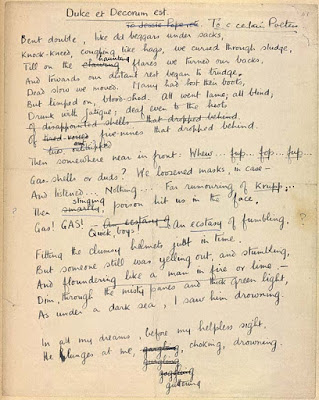 Dulce et Decorum est.
To Jessie Pope etc. To a certain Poetess
Bent double, like old beggars under sacks,
Knock-kneed, coughing like hags, we cursed through sludge,
haunting
Till on the clawing flares we turned our backs,
And towards our distant rest began to trudge.
Dead slow we moved. Many had lost their boots,
But limped on, blood-shod. All went lame; all blind;
Drunk with fatigue; deaf even to the hoots
Of disappointed shells that dropped behind.
Of five-nines that dropped behind.
Then somewhere near in front: Whew... fup... fop... fup...
Gas-shells or duds? We loosened masks, in case –
And listened... Nothing... Far rumouring of Krupp...
stinging
Then smartly, poison hit us in the face.
Gas! GAS! An ecstasy of an ecstasy of fumbling.
Quick, boys!
Fitting the clumsy helmets just in time.
But someone still was yelling out and stumbling,
And floundering like a man in fire or lime. –
Dim, through the misty panes and thick green light,
As under a dark sea, I saw him drowning.
In all my dreams, before my helpless sight,
He plunges at me, gargling, choking, drowning.
gurgling
goggling
guttering